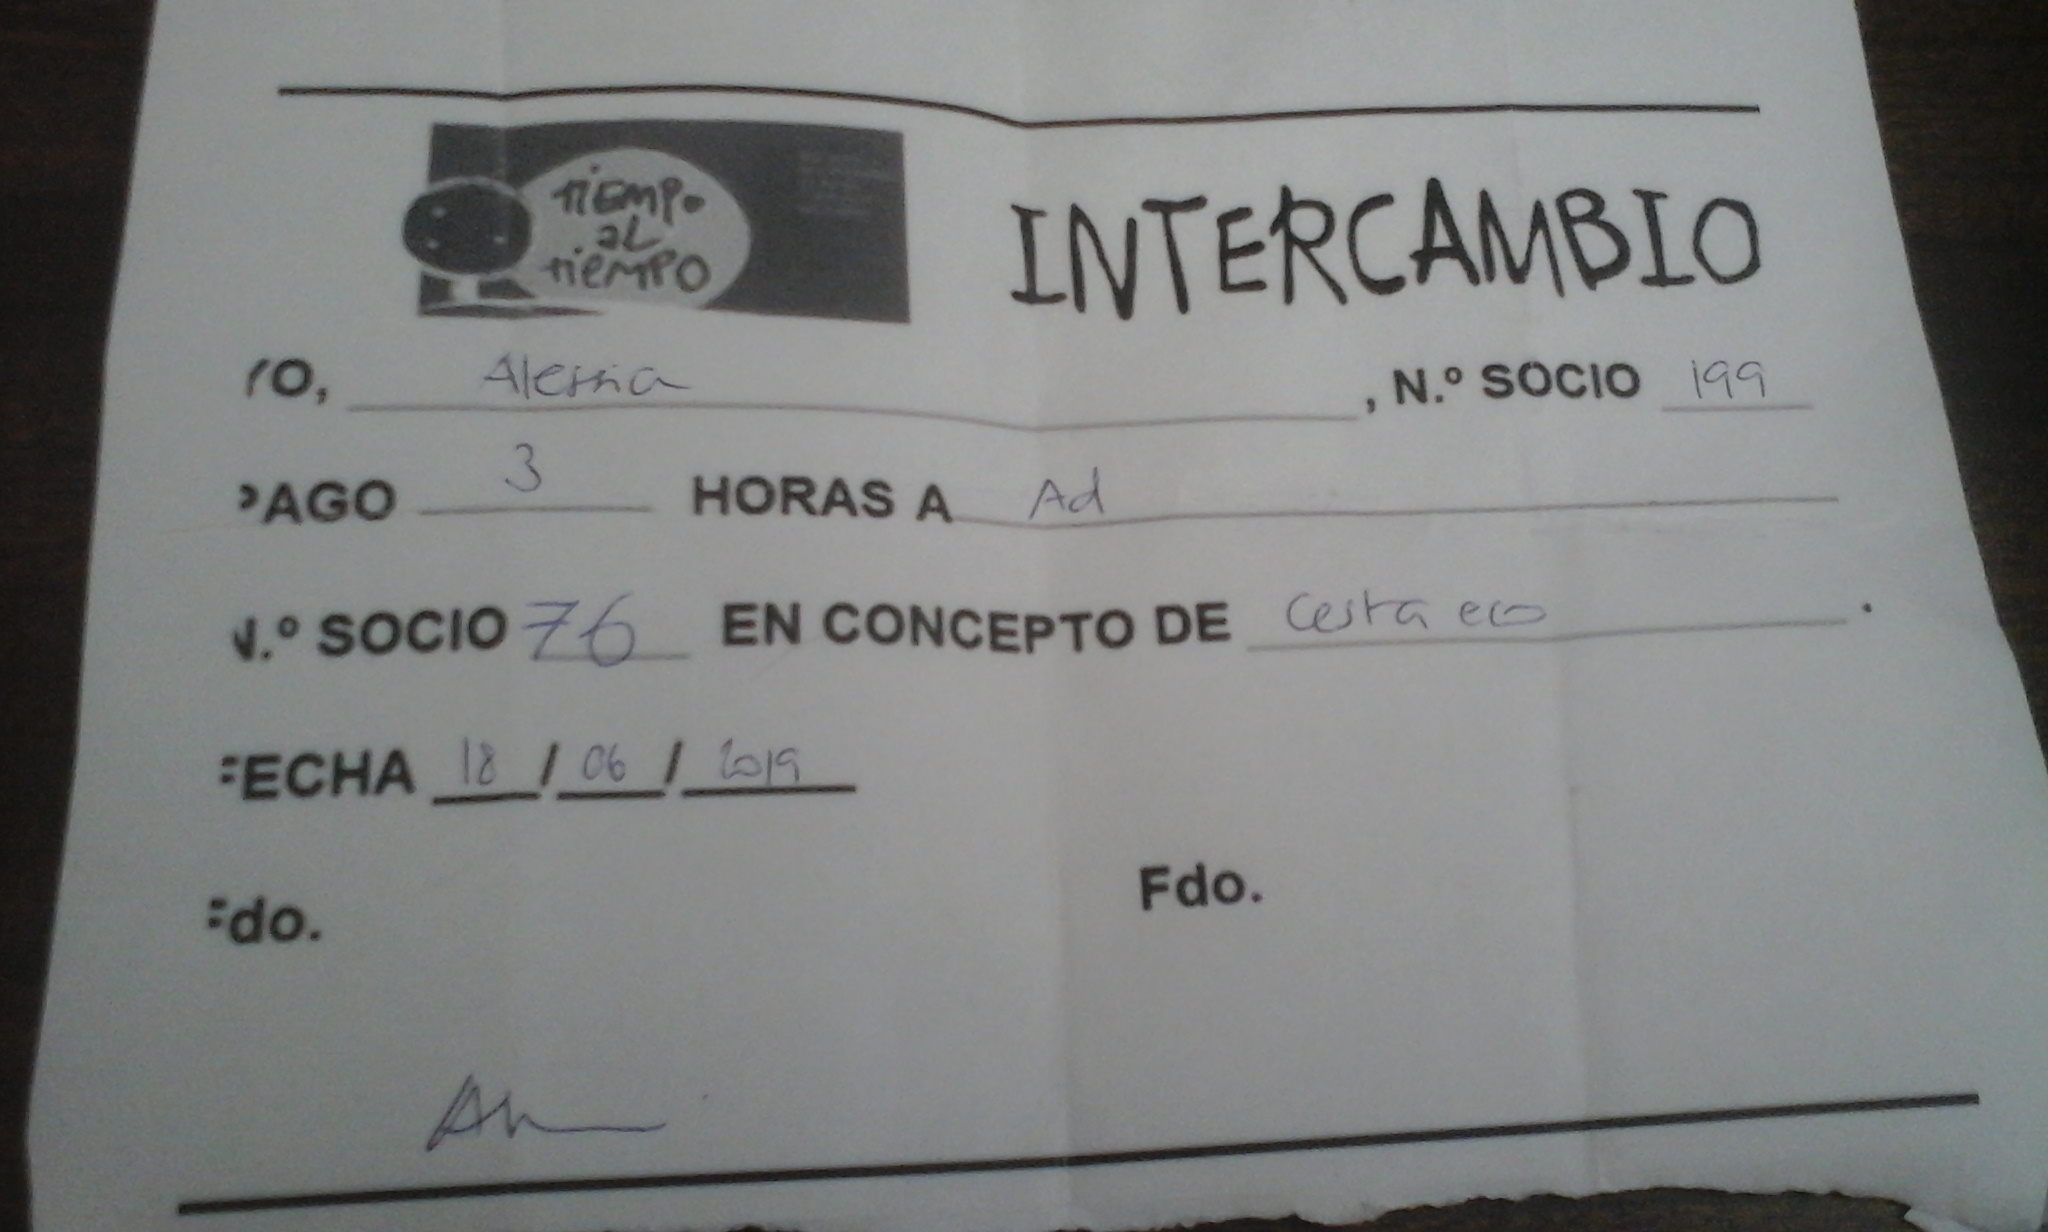 TiEMPO
aL
TiEMPO
INTERCAMBIO
YO, Alessia, N.º SOCIO 199
PAGO 3 HORAS A Ad
N.º SOCIO 76 EN CONCEPTO DE Cesta eco.
FECHA 18 / 06 / 2019
Fdo. Fdo.